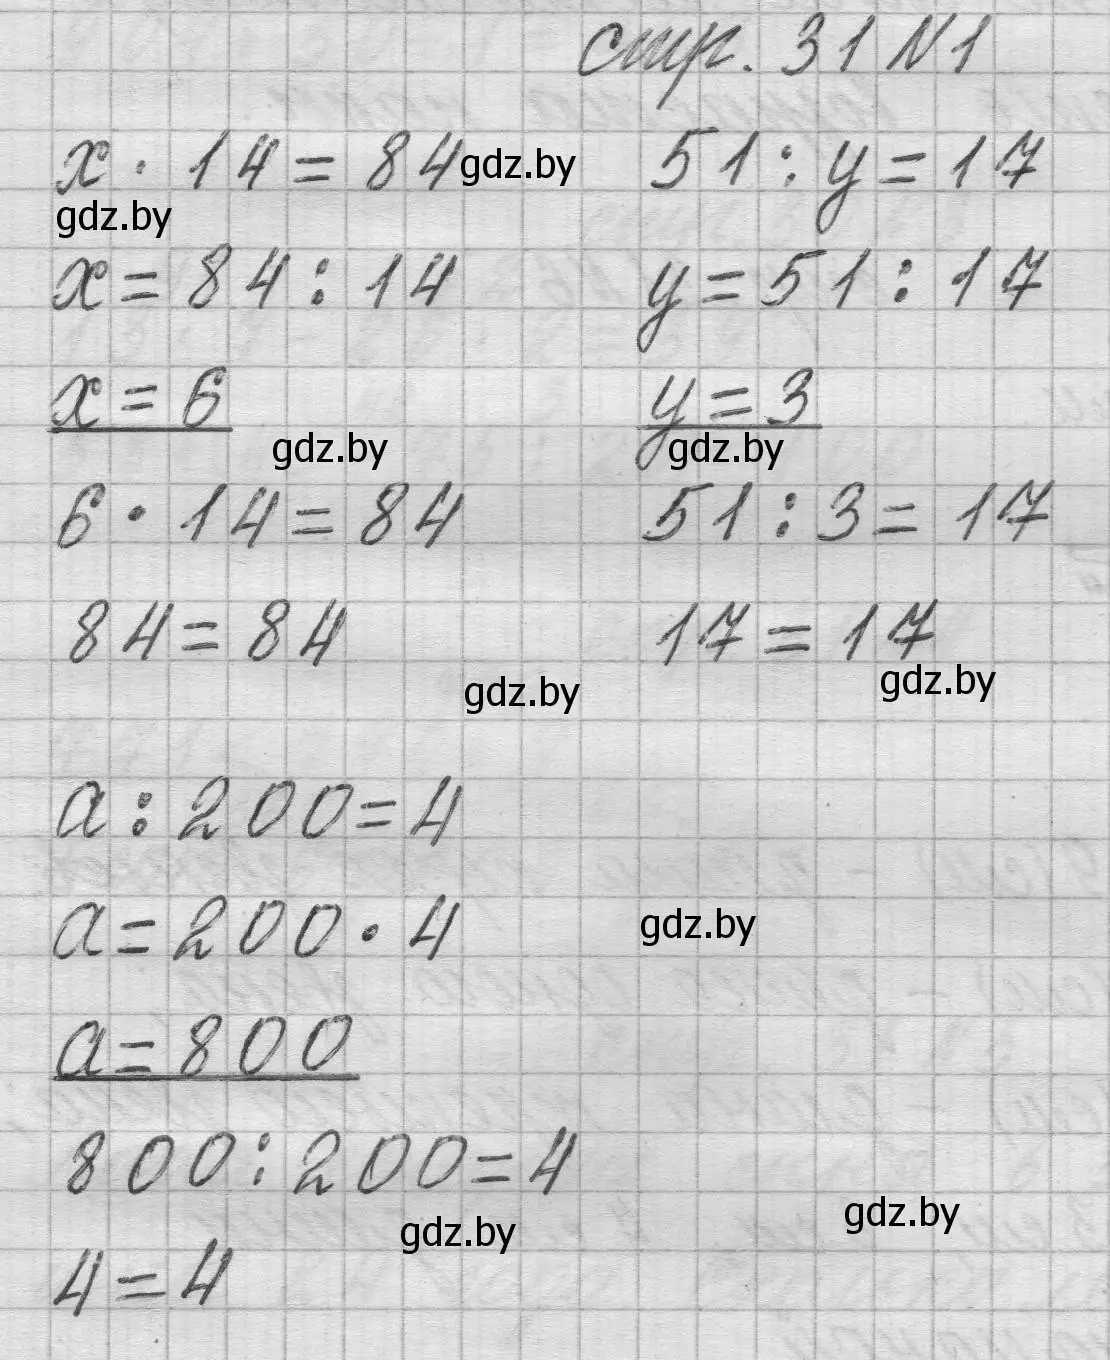 стр. 31 N1
x · 14 = 84 gdz.by 51 : y = 17
gdz.by
x = 84 : 14 y = 51 : 17
x = 6 y = 3
gdz.by gdz.by
6 · 14 = 84 51 : 3 = 17
84 = 84 17 = 17
gdz.by gdz.by
a : 200 = 4
a = 200 · 4 gdz.by
a = 800
800 : 200 = 4
gdz.by gdz.by
4 = 4